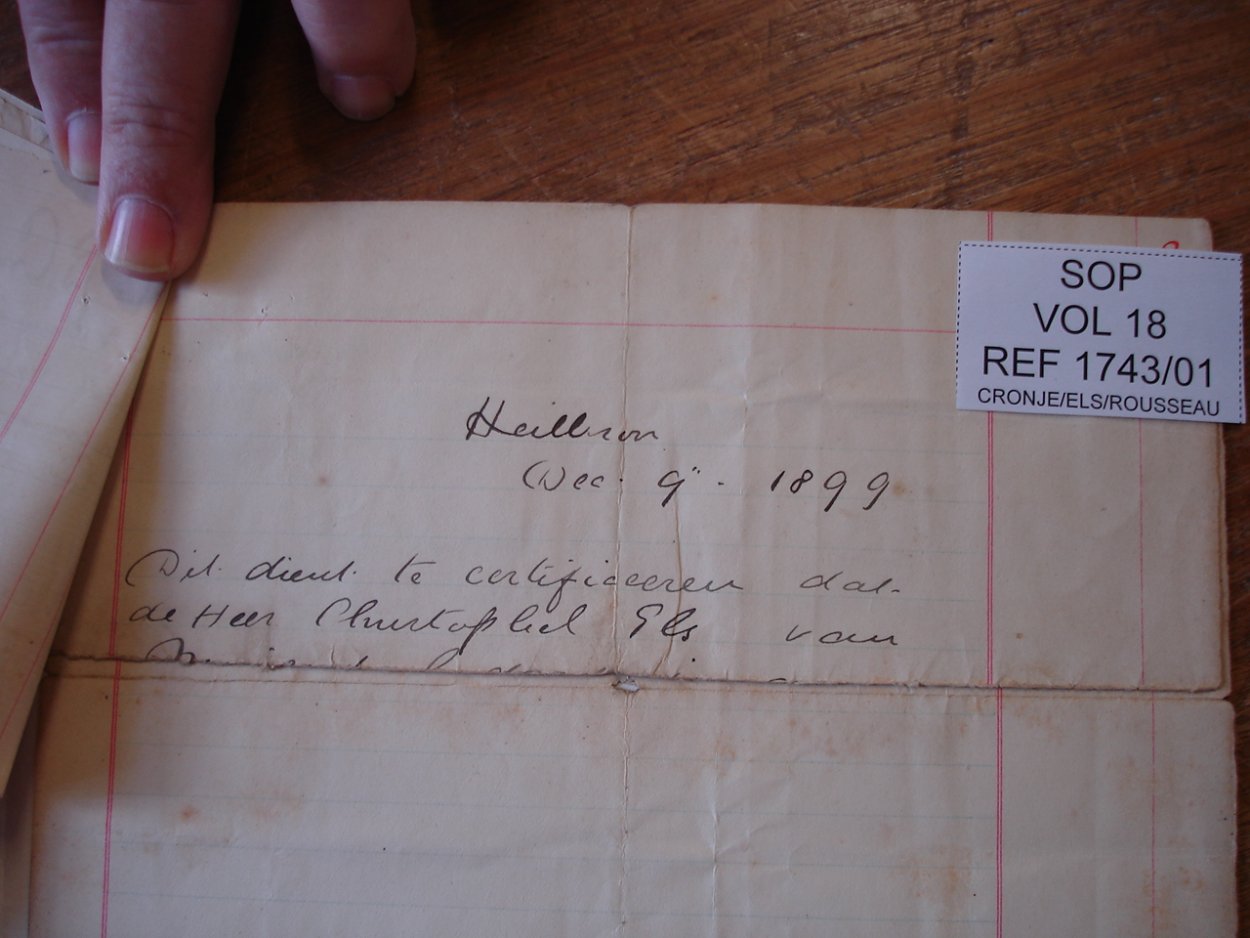 SOP
VOL 18
REF 1743/01
CRONJE/ELS/ROUSSEAU
Heilbron
Dec. 9". 1899
Dit dient te certificeeren dat
de Heer Christoffel Els van